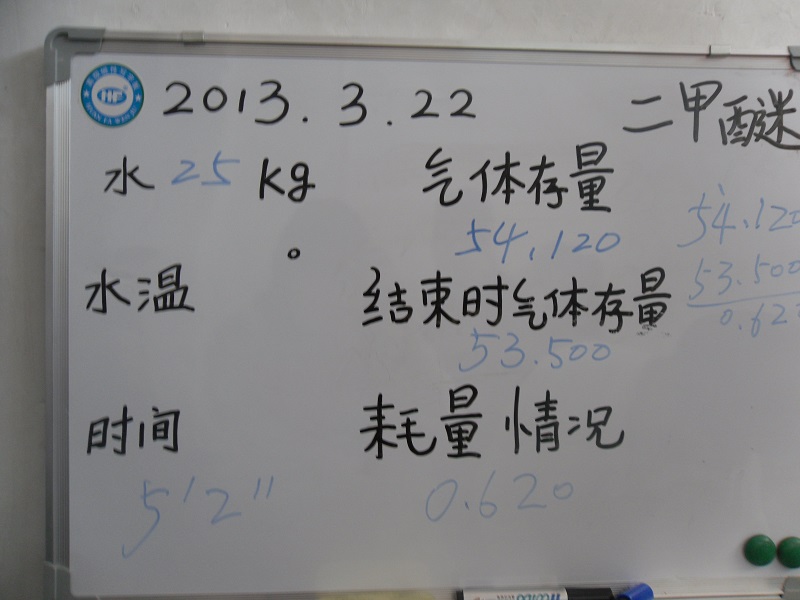 2013.3.22
二甲醚
水 25 kg
气体存量
54.120
54.120
水温 °
结束时气体存量
53.500
53.500
0.620
时间
耗量情况
5'2"
0.620
HF